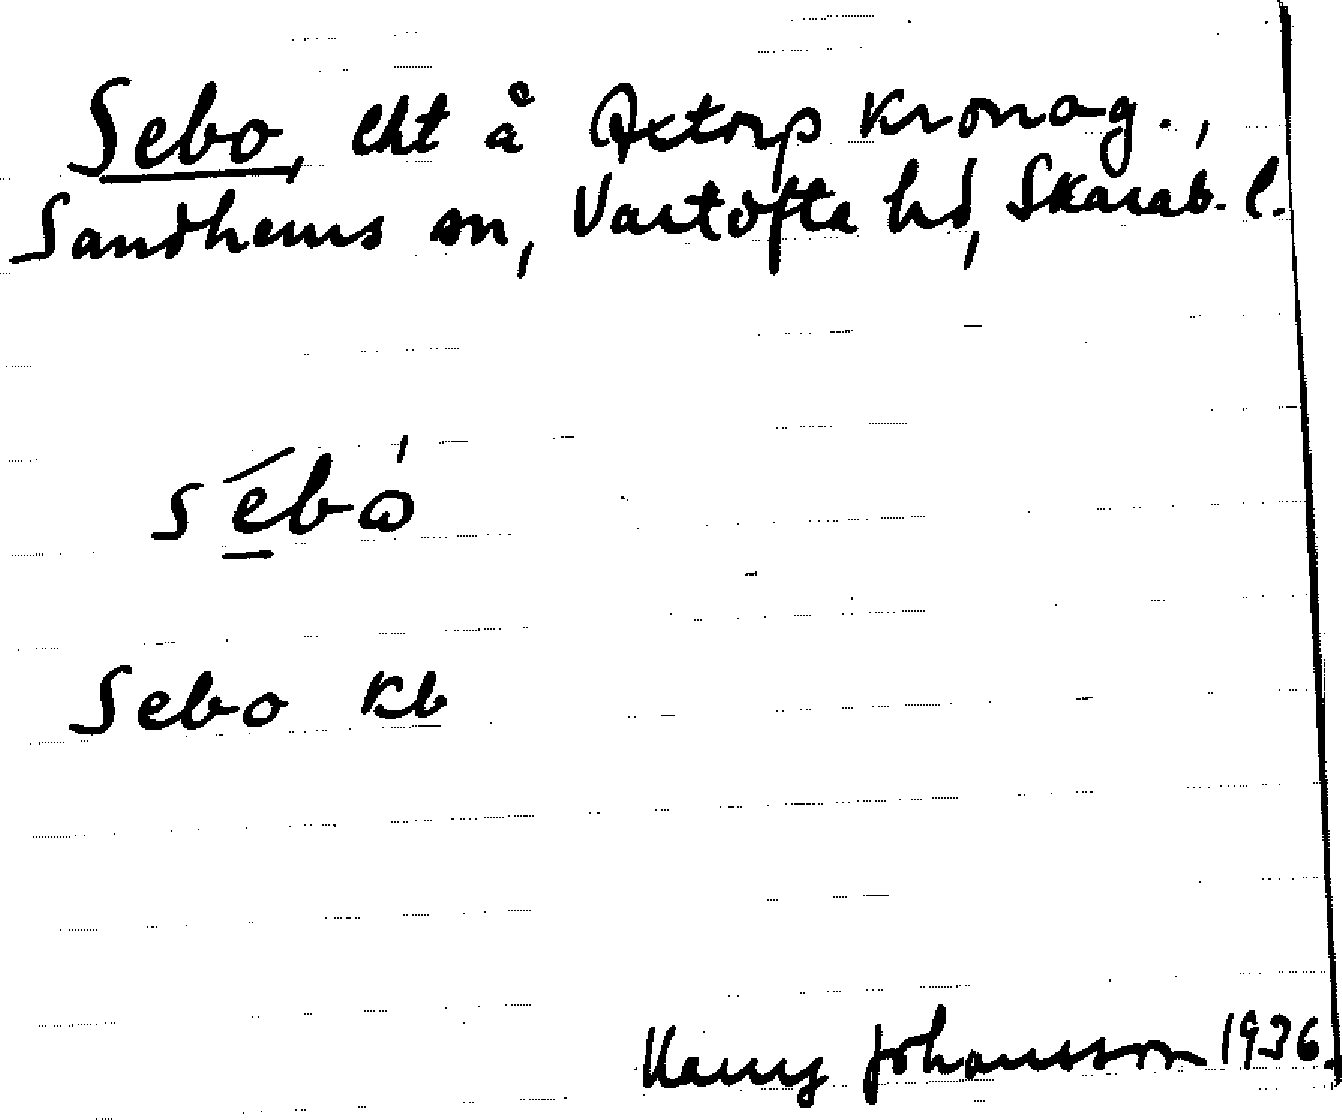 Sebo, lht å Axtorp kronog.,
Sandhems sn, Vartofta hd, Skarab. l.
sébó
Sebo kb
Johansson 1936.